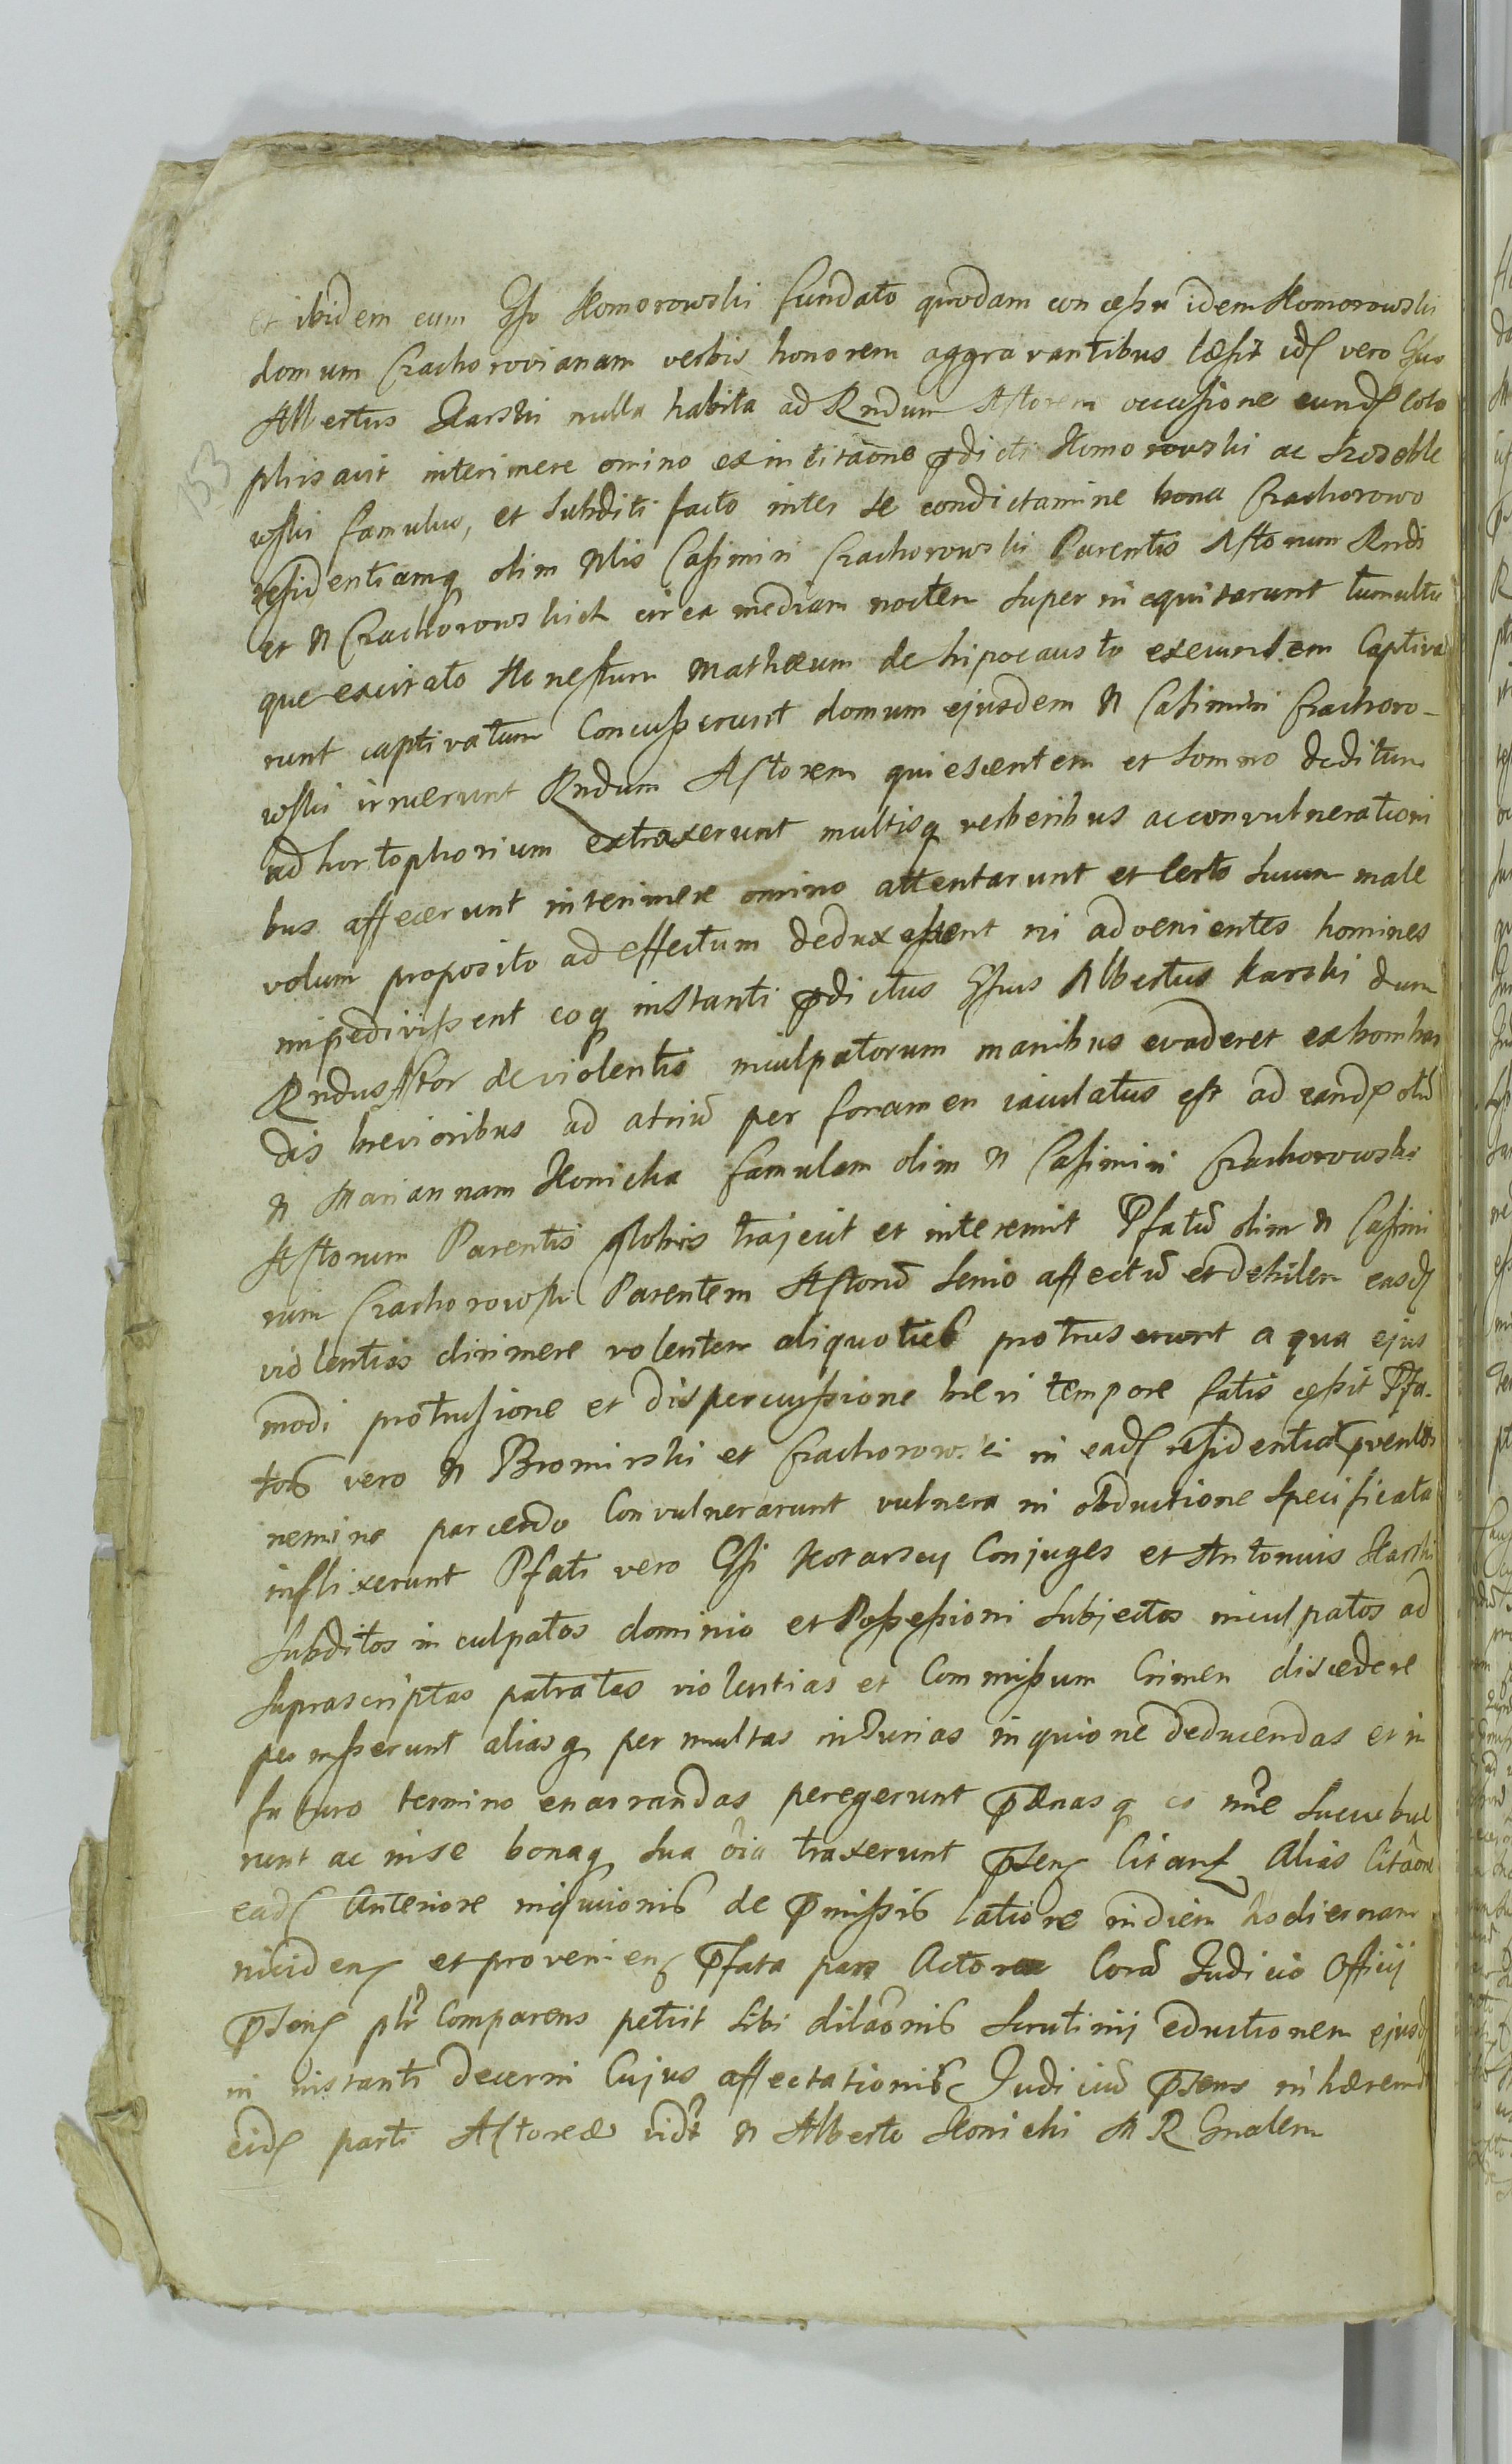 Et ibidem cum Gso Komorowski fundato quodam concessu idem Komorowski
domum Czachorovianam verbis honorem aggravantibus læsit idq vero Gsus
Albertus Karski nulla habita ad Rndum Actorem occasione eundq colo
phisavit interimere omino ex incitaõne pdicti Komorowski ac
wski famulus, et subditi facto inter se condictamine bona Czachorowo
residentiamq olim Nlis Casimiri Czachorowski Parentis Actorum Rndi
et N Czachorowskich circa mediam noctem superinequitarunt tumultu
que excitato Honestum Mathæum de hipocausto exeuntem Captiva
runt captivatum Concusserunt domum ejusdem N Casimiri Czachoro-
wski irruerunt Rndum Actorem quiescentem et somno deditum
ad hortophorium extraxerunt multisq verberibus ac convulnerationi
bus affecerunt interimere omino attentarunt et certo suum male
volum proposito ad effectum deduxissent ni advenientes homines
impedivissent eoq instanti pdictus Gsus Albertus Karski dum
Rndus Actor de violentis inculpatorum manibus evaderet ex bombar
dis brevioribus ad atriũ per foramen iaculatus est ad eandq olĩ
N Mariannam Konicka famulam olim N Casimiri Czachorowski
Actorum Parentis globis trajecit et interemit Pfatũ olim N Casimi
rum Czachorowski Parentem Actorũ senio affectũ et debilem easdq
violentias dirimere volentem aliquoties protruserunt a qua ejus
modi protrusione et dispercussione brevi tempore fatis cessit Pfa-
tos vero N Bromirski et Czachorowski in eadq residentia pventos
nemine parcendo Convulnerarunt vulnera in obductione specificata
inflixerunt Pfati vero Gsi Kotarscy Conjuges et Antonius Karski
subditos inculpatos dominio et Possessioni subjectos inculpatos ad
suprascriptas patratas violentias et Commissum Crimen discedere
permiserunt aliasq per multas iniurias inquione deducendas et in
futuro termino enarrandas peregerunt pænasq eo nñe succubue
runt ac in se bonaq sua oĩa traxerunt psenq litanq Alias Citaõne
eadq Anteriore inqvuionis de pmissis latiore in diem hodiernam
incidenq et provenienq Pfata pars Actorea Corã Judicio Officij
psenq plr Comparens petiit sibi dilaõnis scrutinij eductionem ejusdq
in instanti decerni Cujus affectationis Judiciũ psens inhærendo
eidq parti Actoreæ vidt N Alberto Konicki M R Gnalem
153